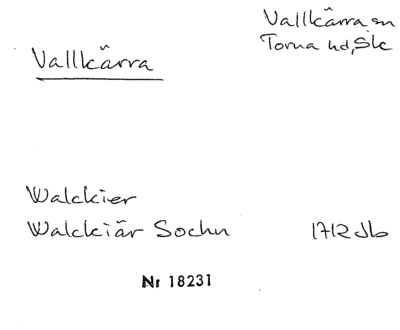 Vallkärra sn
Torna hd, Sk
Vallkärra
Walckier
Walckiär Sochn 1712 Jb
Nr 18231